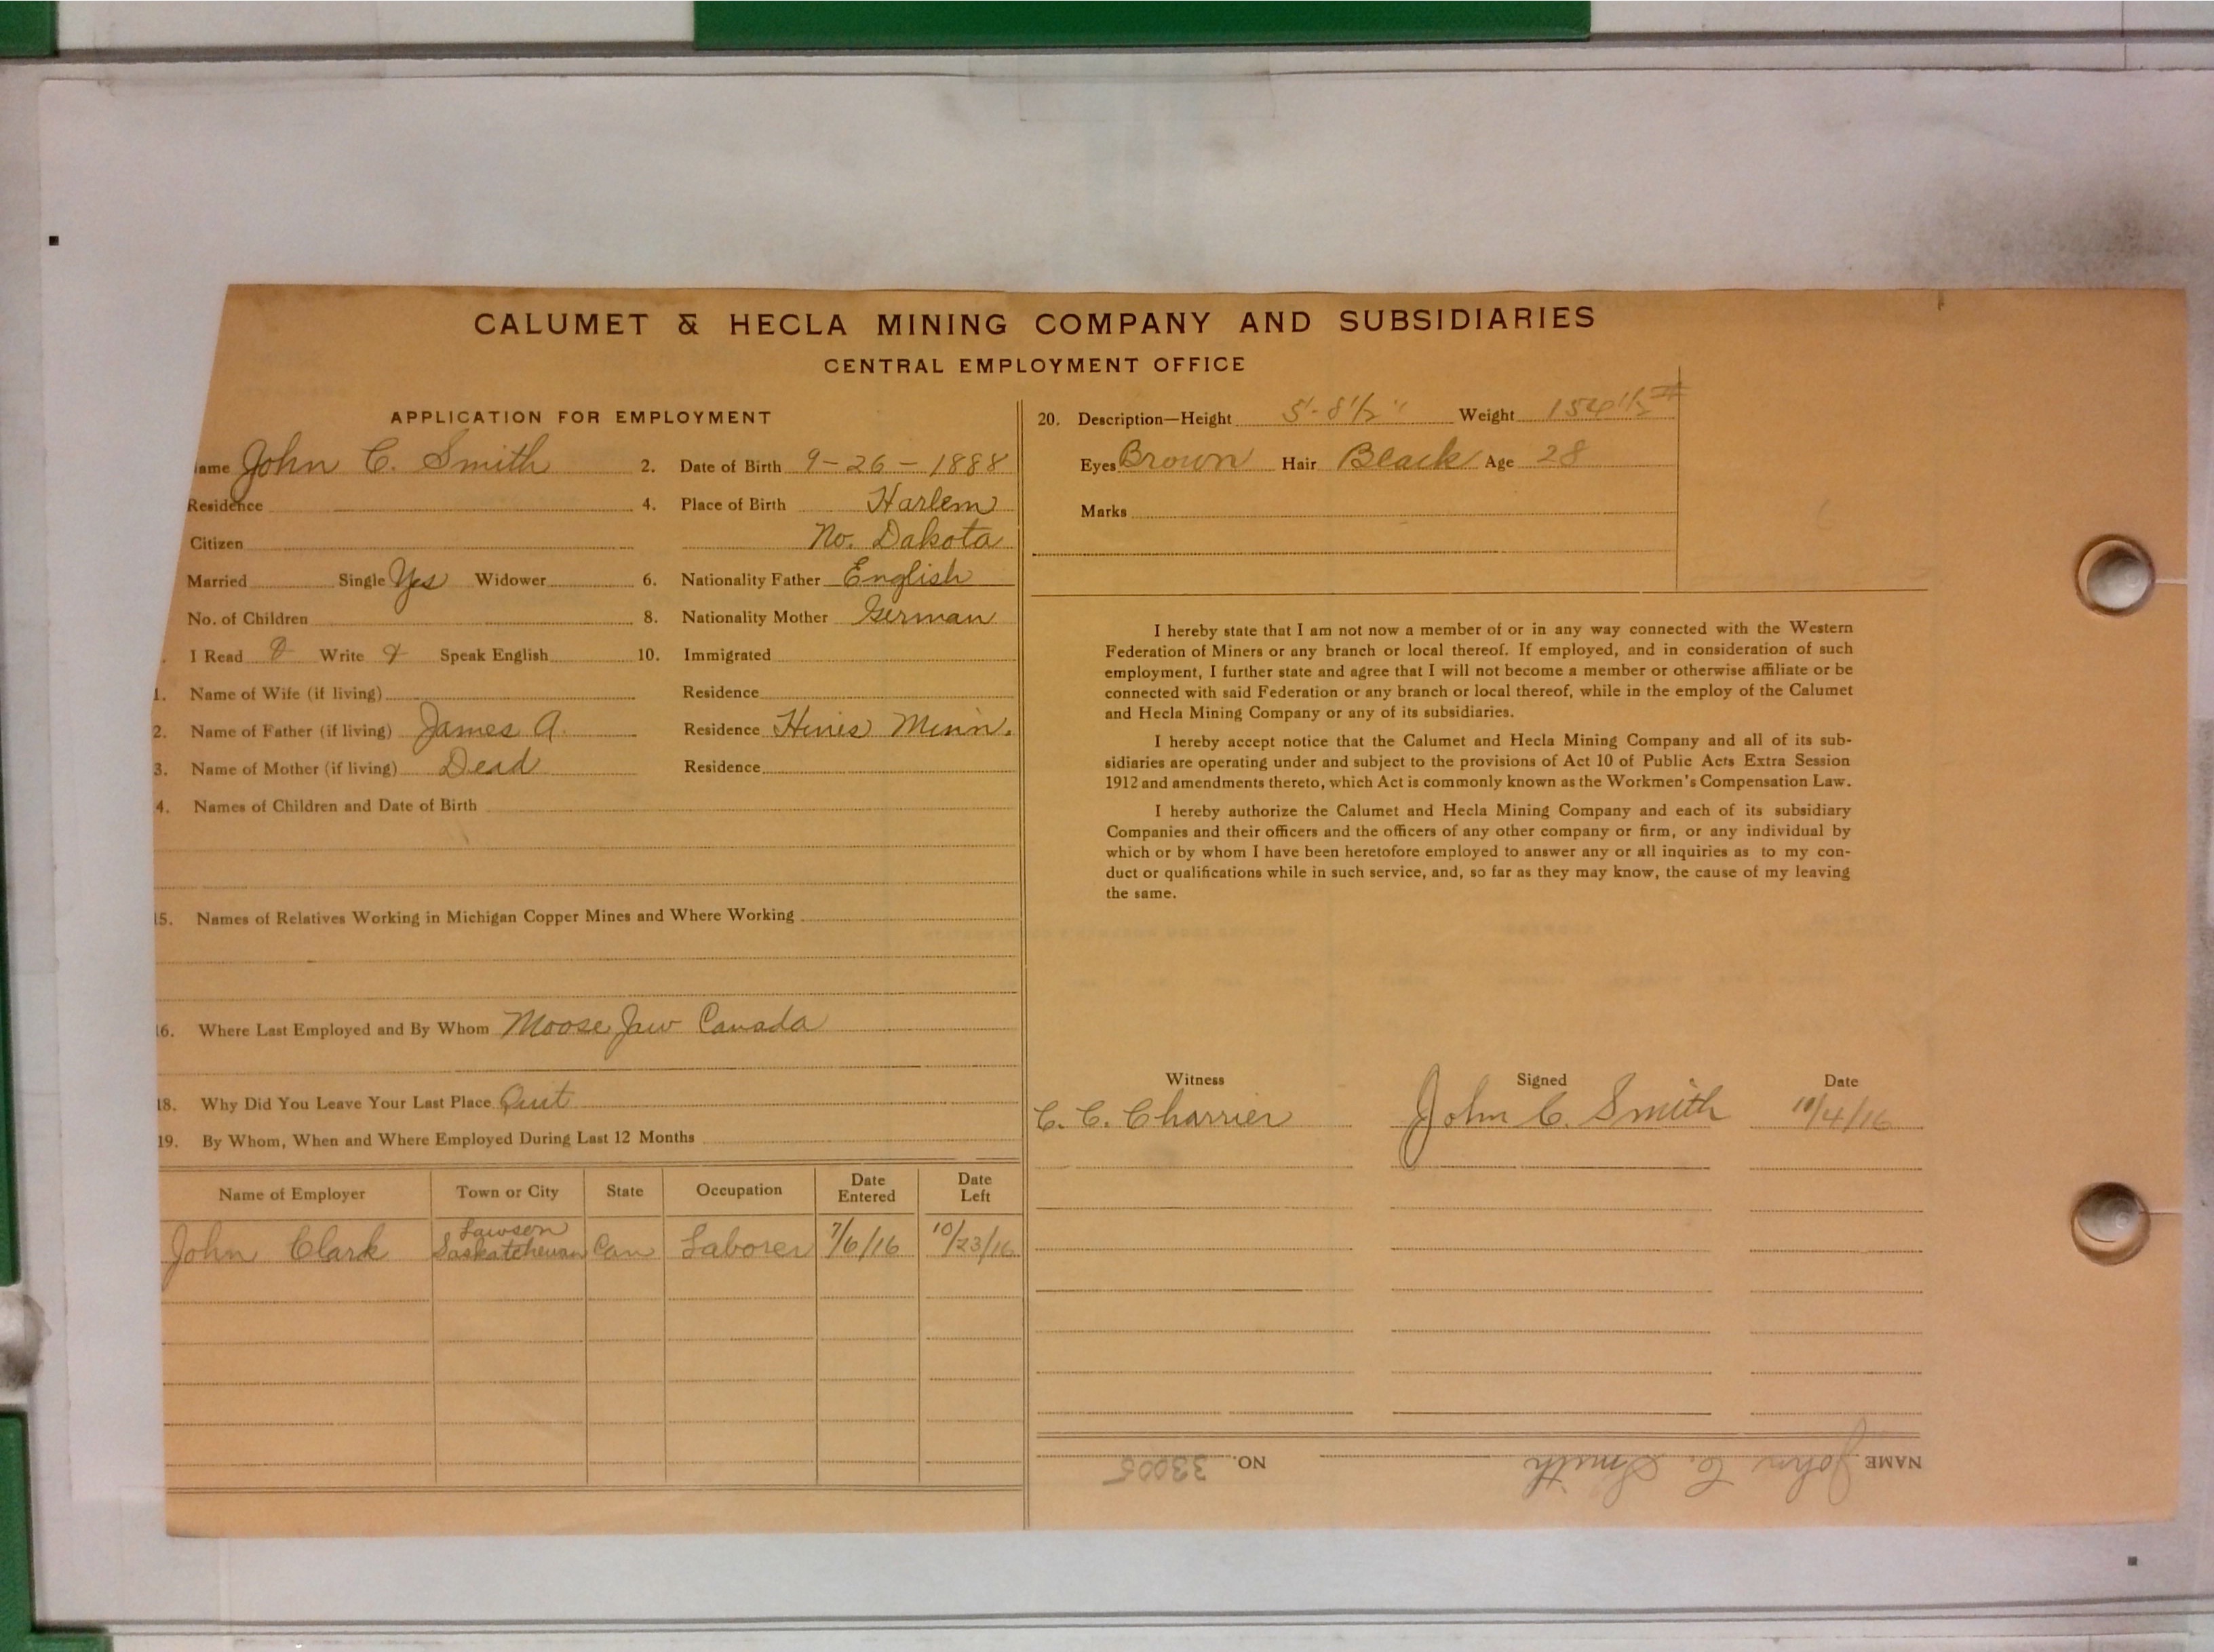 CALUMET & HECLA MINING COMPANY AND SUBSIDIARIES
CENTRAL EMPLOYMENT OFFICE
APPLICATION FOR EMPLOYMENT
ame John C. Smith 2. Date of Birth 9-26-1888
Residence 4. Place of Birth Harlem
Citizen No. Dakota
Married Single Yes Widower 6. Nationality Father English
No. of Children 8. Nationality Mother German
I Read Write Speak English 10. Immigrated
1. Name of Wife (if living) Residence
2. Name of Father (if living) James A. Residence Hines Minn.
3. Name of Mother (if living) Dead Residence
4. Names of Children and Date of Birth
15. Names of Relatives Working in Michigan Copper Mines and Where Working
16. Where Last Employed and By Whom Moose Jaw Canada
18. Why Did You Leave Your Last Place Quit
19. By Whom, When and Where Employed During Last 12 Months
Name of Employer Town or City State Occupation Date Entered Date Left
John Clark Lawson Saskatchewan Can Laborer 7/6/16 10/23/16
20. Description—Height 5'-8 1/2" Weight 154 1/2 #
Eyes Brown Hair Black Age 28
Marks
I hereby state that I am not now a member of or in any way connected with the Western
Federation of Miners or any branch or local thereof. If employed, and in consideration of such
employment, I further state and agree that I will not become a member or otherwise affiliate or be
connected with said Federation or any branch or local thereof, while in the employ of the Calumet
and Hecla Mining Company or any of its subsidiaries.
I hereby accept notice that the Calumet and Hecla Mining Company and all of its sub-
sidiaries are operating under and subject to the provisions of Act 10 of Public Acts Extra Session
1912 and amendments thereto, which Act is commonly known as the Workmen's Compensation Law.
I hereby authorize the Calumet and Hecla Mining Company and each of its subsidiary
Companies and their officers and the officers of any other company or firm, or any individual by
which or by whom I have been heretofore employed to answer any or all inquiries as to my con-
duct or qualifications while in such service, and, so far as they may know, the cause of my leaving
the same.
Witness Signed Date
C. C. Charrier John C. Smith 11/4/16
NAME John C. Smith NO. 33005